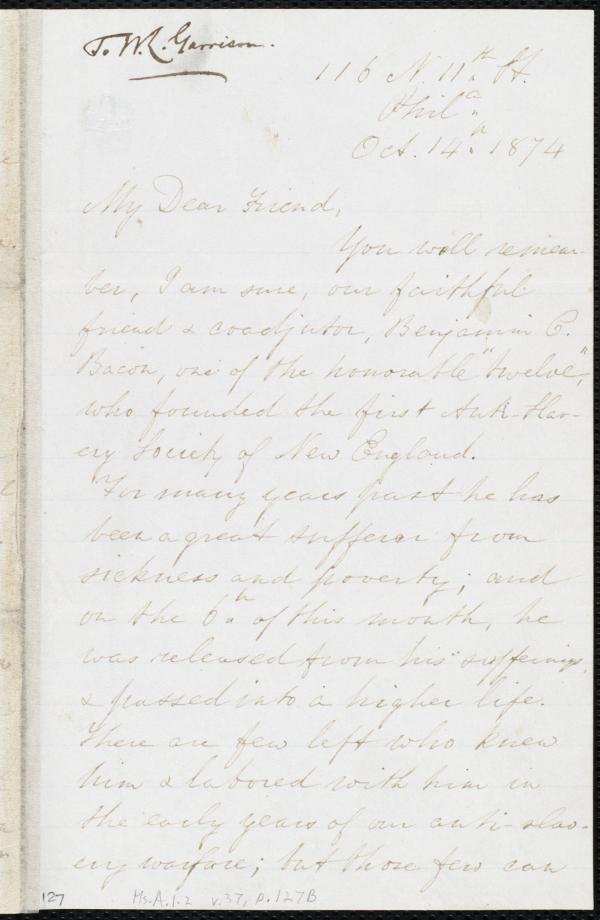 To W. L. Garrison.
116 N. 11th St.
Phila.
Oct. 14th 1874
My Dear Friend,
You will remem-
ber, I am sure, our faithful
friend & coadjutor, Benjamin C.
Bacon, one of the honorable "twelve",
who founded the first Anti-Slav-
ery Society of New England.
For many years past he has
been a great sufferer from
sickness and poverty; and
on the 6th of this month, he
was released from his sufferings,
& passed into a higher life.
There are few left who knew
him & labored with him in
the early years of our anti-slav-
ery warfare; but those few can
127 Ms.A.1.2 v.37, p.127B